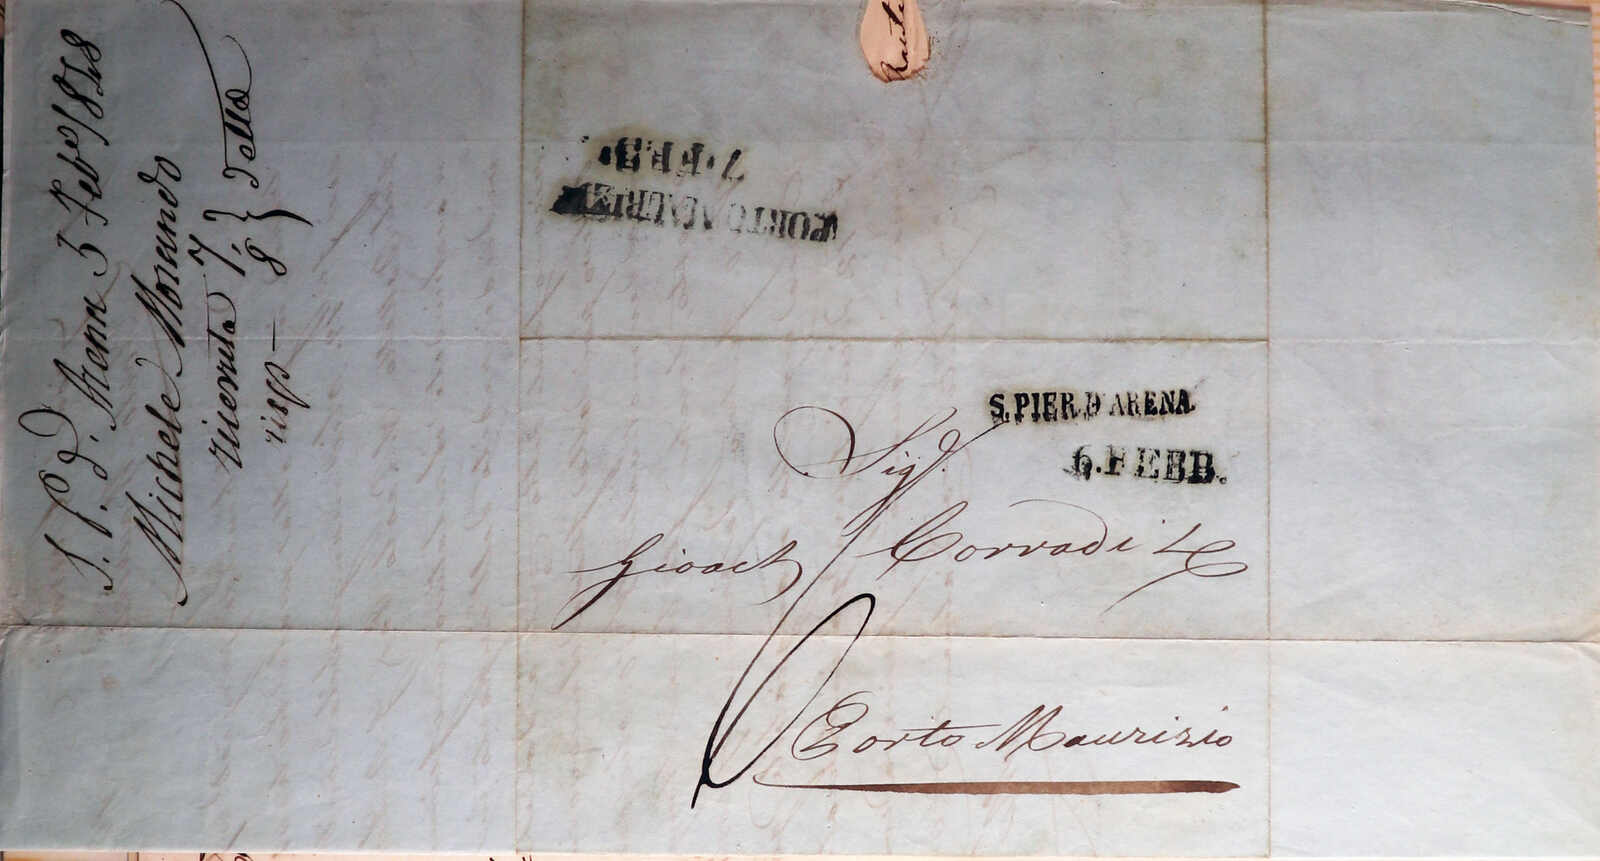 S. P. d'Arena 5 Feb° 1848
Michele Morando
ricevuta 7. } detto
risp — 8
7. FEB.
PORTO MAURIZIO
S. PIER D'ARENA
6. FEBB.
Sig.
Gioach Corradi
Porto Maurizio